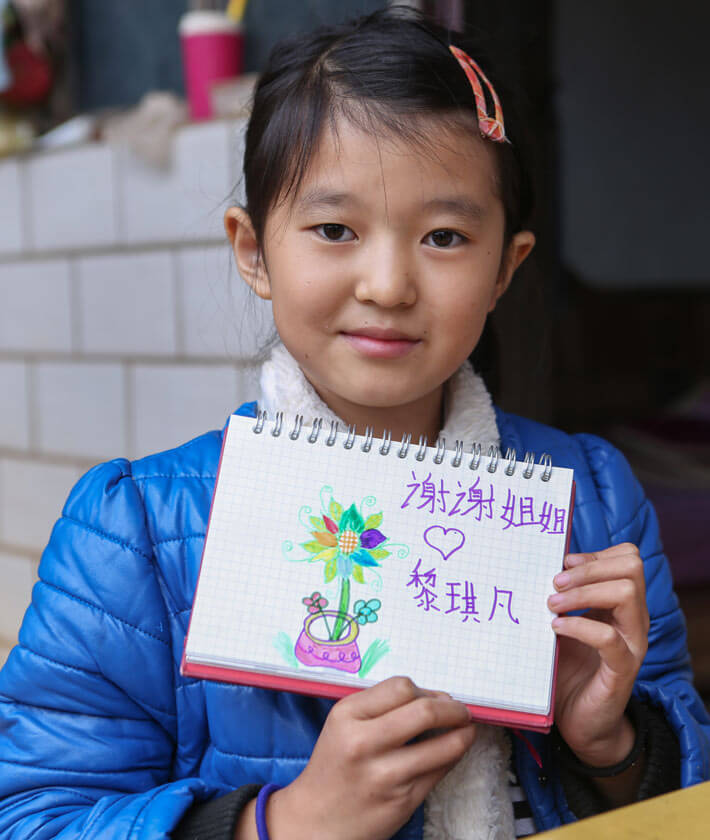 谢谢姐姐
♡
黎琪凡